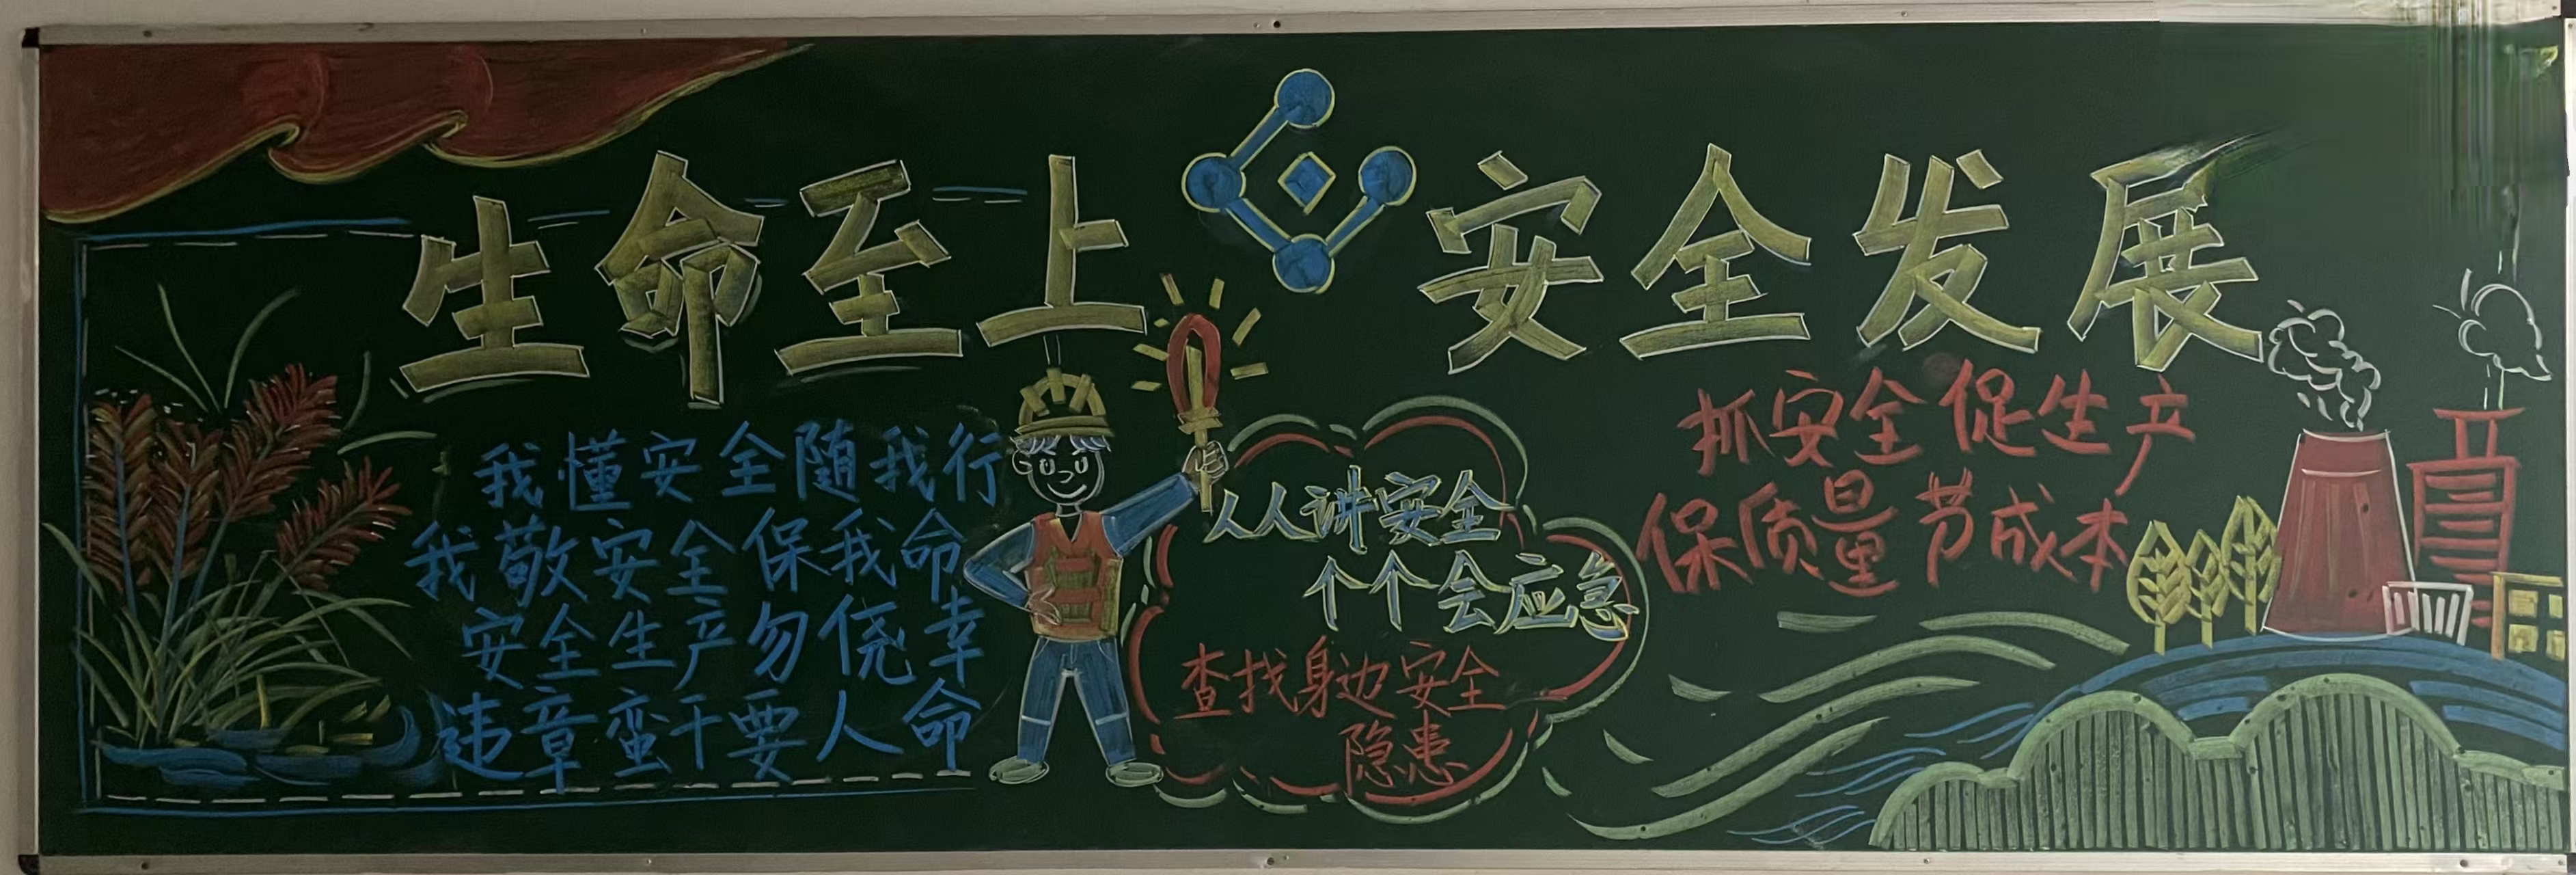 生命至上 安全发展
我懂安全随我行
我敬安全保我命
安全生产勿侥幸
违章蛮干要人命
人人讲安全
个个会应急
查找身边安全
隐患
抓安全促生产
保质量节成本